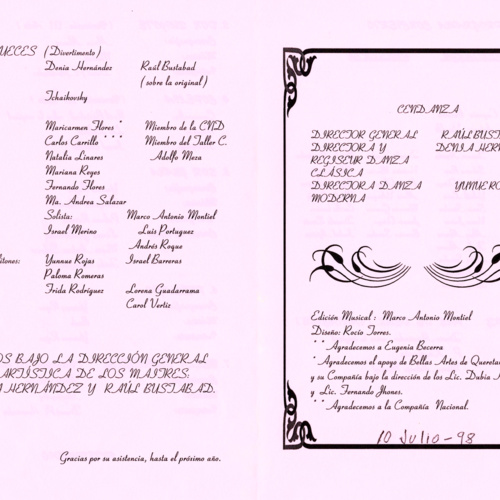 UECES (Divertimento)
Denia Hernández Raúl Bustabad
(sobre la original)
Tchaikovsky
Maricarmen Flores * Miembro de la CND
Carlos Carrillo * * * Miembro del Taller C.
Natalia Linares Adolfo Meza
Mariana Reyes
Fernando Flores
Ma. Andrea Salazar
Solista: Marco Antonio Montiel
Israel Merino Luis Portuguez
Andrés Roque
itones: Yunnue Rojas Israel Barreras
Paloma Romeras
Frida Rodríguez Lorena Guadarrama
Carol Vertiz
OS BAJO LA DIRECCIÓN GENERAL
ARTÍSTICA DE LOS MAITRES:
A HERNÁNDEZ Y RAÚL BUSTABAD.
Gracias por su asistencia, hasta el próximo año.
CENDANZA
DIRECTOR GENERAL RAÚL BUST
DIRECTORA Y DENIA HER
REGISEUR DANZA
CLÁSICA
DIRECTORA DANZA YUNUE RO
MODERNA
Edición Musical : Marco Antonio Montiel
Diseño: Rocío Torres.
* * Agradecemos a Eugenia Becerra
* Agradecemos el apoyo de Bellas Artes de Queretar
y su Compañía bajo la dirección de los Lic. Dubia
y Lic. Fernando Jhones.
* * Agradecemos a la Compañía Nacional.
10 JULIO-98